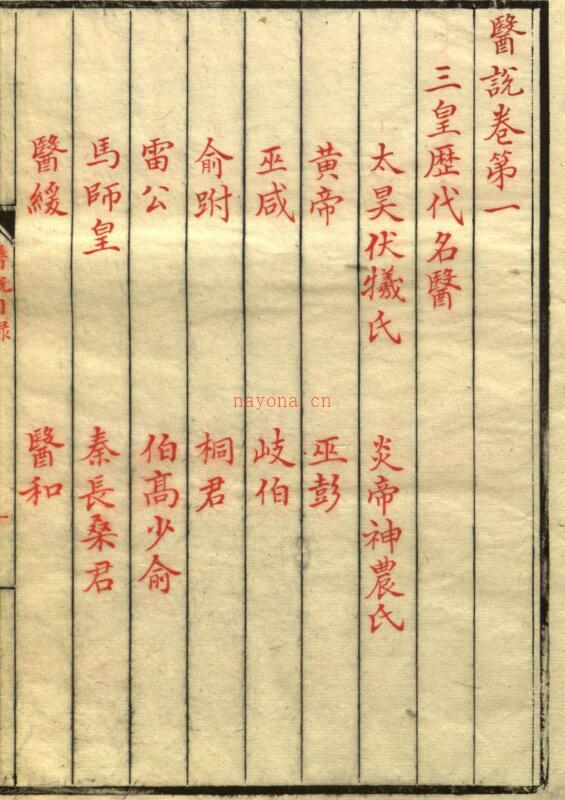 醫說卷第一
三皇歷代名醫
太昊伏犧氏 炎帝神農氏
黃帝 巫彭
巫咸 岐伯
俞跗 桐君
雷公 伯高少俞
馬師皇 秦長桑君
醫緩 醫和
nayona.cn